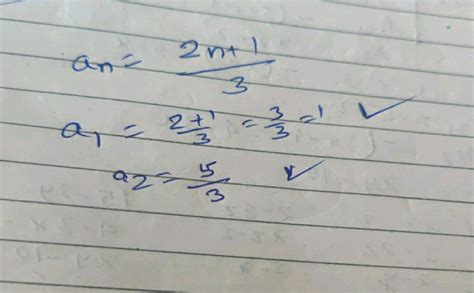 an = 2n+1/3
a1 = 2+1/3 = 3/3 = 1 ✓
a2 = 5/3 ✓